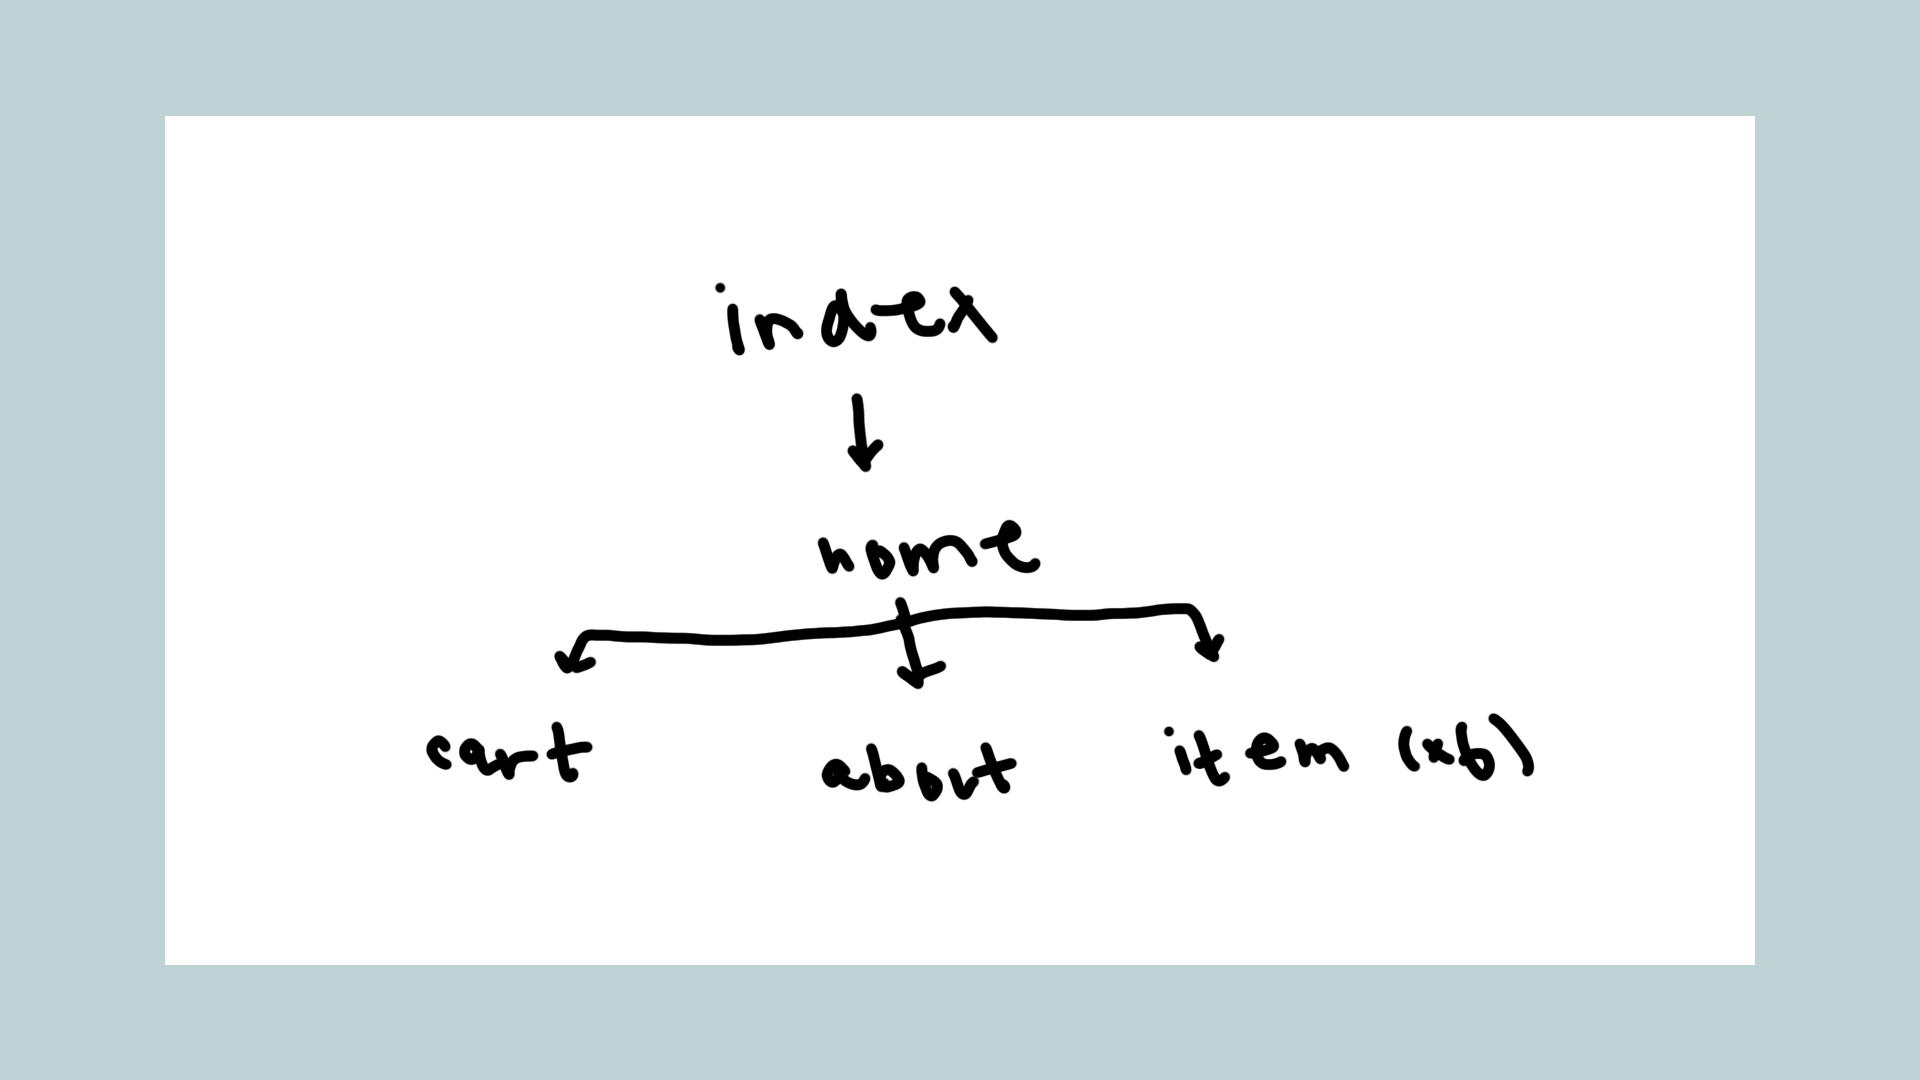 index
home
cart
about
item (x6)